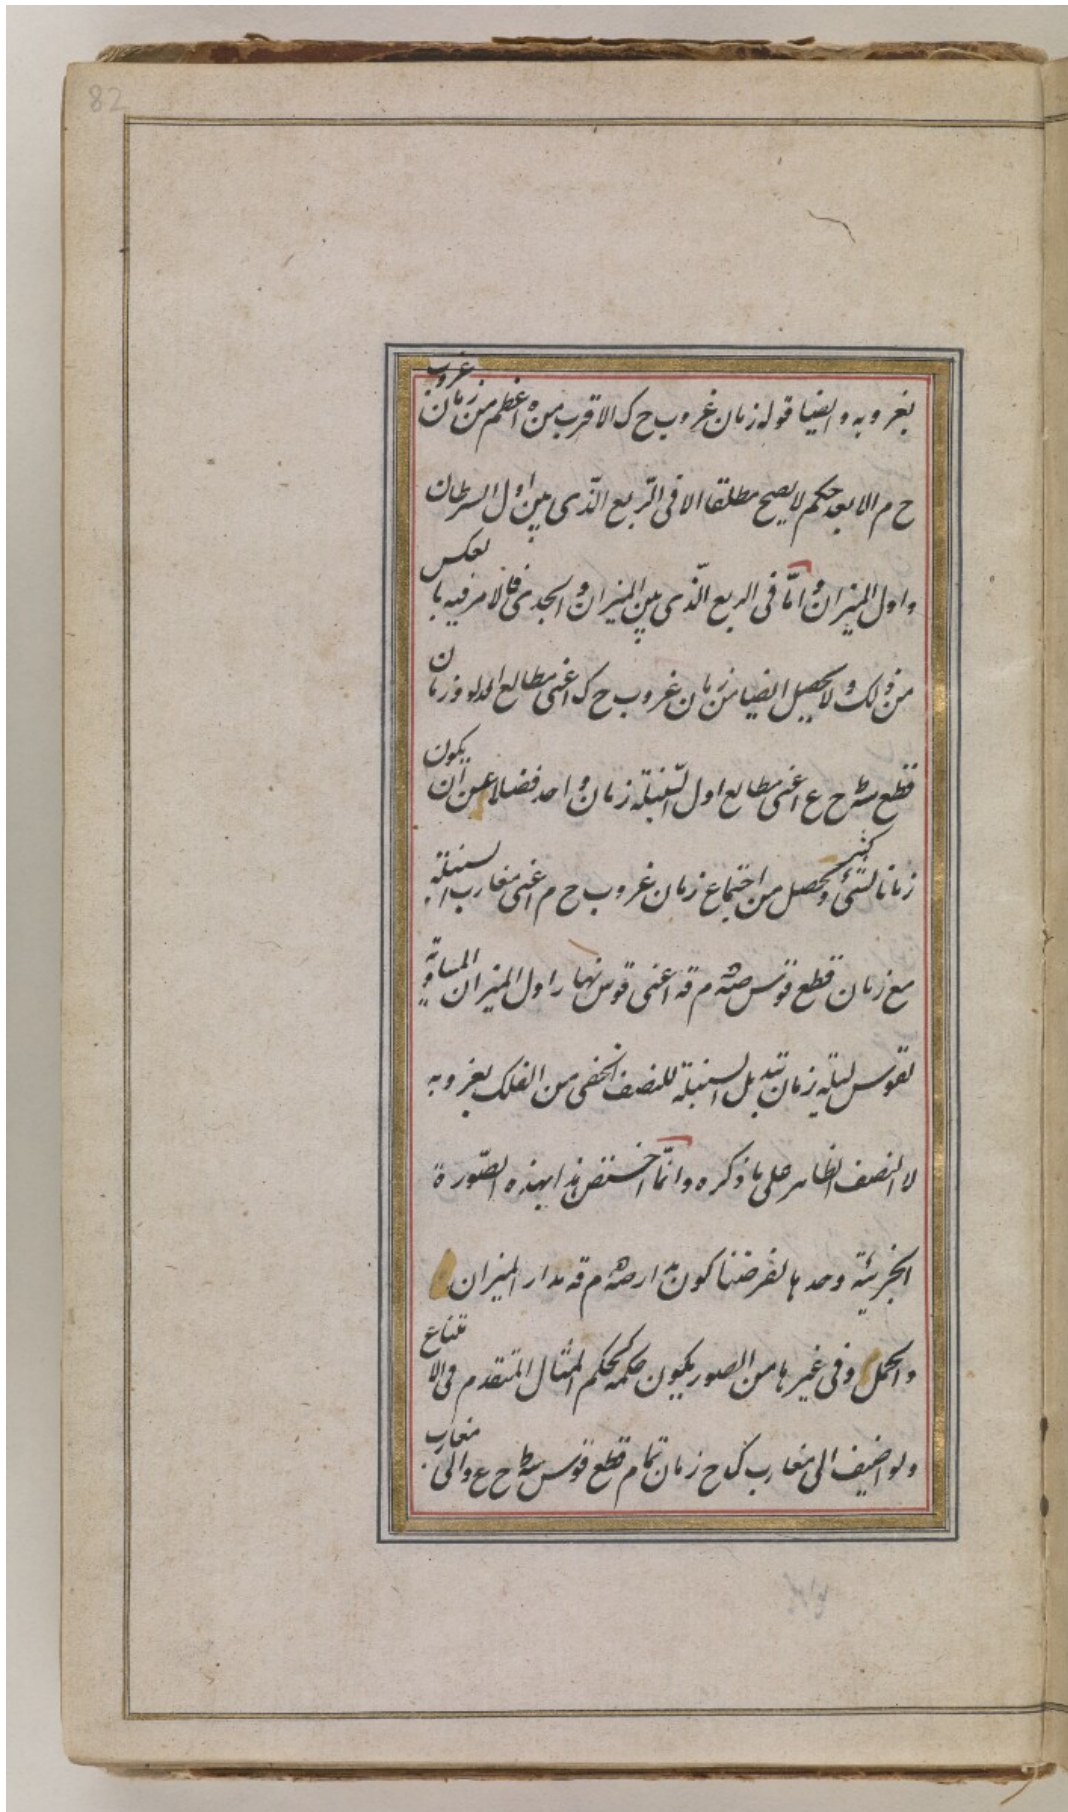 82
بغروبه وايضا قوله زمان غروب ح ك الاقرب من ه اعظم من زمان غروب
ح م الابعد حكم لا يصح مطلقا الا فى الربع الذى بين اول السرطان
واول الميزان وامّا فى الربع الذى بين الميزان والجدى فالامر فيه بالعكس
من ذلك ولا يحصل ايضا من زمان غروب ح ك اعنى مطالع الدلو وزمان
قطع سط ح ع اعنى مطالع اول السنبلة زمان واحد فضلا عن ان يكون
زمانا لشىء ويحصل من اجتماع زمان غروب ح م اعنى مغارب السنبلة
مع زمان قطع قوس م قه اعنى قوس نهار اول الميزان المساوية
لقوس ليله زمان تبديل السنبلة للنصف الخفى من الفلك بغروبه
لا النصف الظاهر على ما ذكره وانّما اختص هذا بهذه الصّورة
الجزئية وحدها لفرضنا كون مدار م قه مدار الميزان
والحمل وفى غيرها من الصور يكون حكمه كحكم المثال المتقدم فى الامتناع
ولو اضيف الى مغارب ك ح زمان تمام قطع قوس سط ح ع والى مغارب